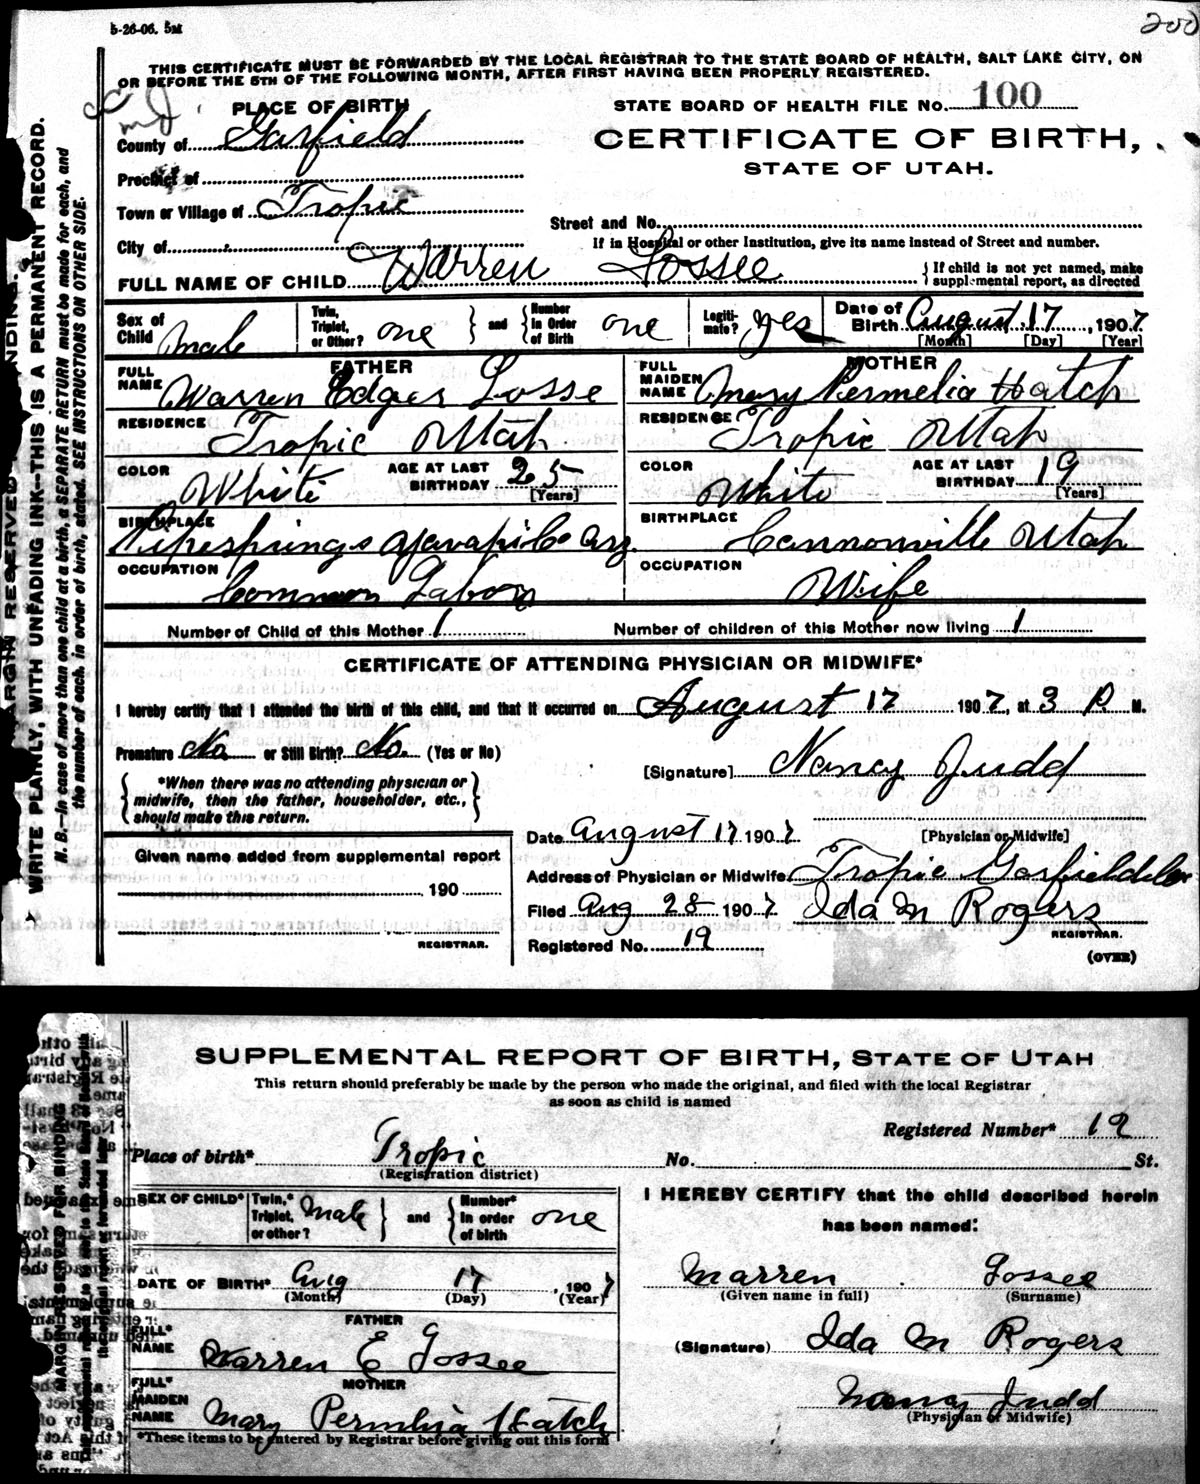 5-26-06. 5M
200
THIS CERTIFICATE MUST BE FORWARDED BY THE LOCAL REGISTRAR TO THE STATE BOARD OF HEALTH, SALT LAKE CITY, ON
OR BEFORE THE 5TH OF THE FOLLOWING MONTH, AFTER FIRST HAVING BEEN PROPERLY REGISTERED.
PLACE OF BIRTH
STATE BOARD OF HEALTH FILE No. 100
County of Garfield
CERTIFICATE OF BIRTH,
STATE OF UTAH.
Precinct of
Town or Village of Tropic
Street and No.
City of
If in Hospital or other Institution, give its name instead of Street and number.
FULL NAME OF CHILD Warren Lossee
{ If child is not yet named, make
supplemental report, as directed
Sex of Child Male
Twin, Triplet, or Other? one } and { Number in Order of Birth one
Legitimate? yes
Date of Birth August 17, 1907
[Month] [Day] [Year]
FATHER
FULL NAME Warren Edgar Losse
MOTHER
FULL MAIDEN NAME Mary Permelia Hatch
RESIDENCE Tropic Utah
RESIDENCE Tropic Utah
COLOR White
AGE AT LAST BIRTHDAY 25 [Years]
COLOR White
AGE AT LAST BIRTHDAY 19 [Years]
BIRTHPLACE Pipesprings Yavapi Co Arz.
BIRTHPLACE Cannonville Utah
OCCUPATION Common Labor
OCCUPATION Wife
Number of Child of this Mother 1
Number of children of this Mother now living 1
CERTIFICATE OF ATTENDING PHYSICIAN OR MIDWIFE*
I hereby certify that I attended the birth of this child, and that it occurred on August 17 1907, at 3 P M.
Premature No or Still Birth? No. (Yes or No)
[Signature] Nancy Judd
{ *When there was no attending physician or
midwife, then the father, householder, etc.,
should make this return. }
Date August 17 1907
[Physician or Midwife]
Given name added from supplemental report
190
REGISTRAR.
Address of Physician or Midwife Tropic Garfield Co
Filed Aug 28 1907 Ida M Rogers
REGISTRAR.
Registered No. 19
(OVER)
MARGIN RESERVED BINDING.
WRITE PLAINLY, WITH UNFADING INK—THIS IS A PERMANENT RECORD.
N. B.—In case of more than one child at a birth, a SEPARATE RETURN must be made for each, and
the number of each, in order of birth, stated. SEE INSTRUCTIONS ON OTHER SIDE.
SUPPLEMENTAL REPORT OF BIRTH, STATE OF UTAH
This return should preferably be made by the person who made the original, and filed with the local Registrar
as soon as child is named
Registered Number* 19
Place of birth* Tropic No. St.
(Registration district)
SEX OF CHILD* Twin,* Triplet, or other? Male } and { Number* in order of birth one
I HEREBY CERTIFY that the child described herein
has been named:
DATE OF BIRTH* Aug 17, 1907
(Month) (Day) (Year)
Warren Lossee
(Given name in full) (Surname)
FATHER
FULL* NAME Warren E Lossee
(Signature) Ida M Rogers
MOTHER
FULL* MAIDEN NAME Mary Permelia Hatch
Nancy Judd
(Physician or Midwife)
*These items to be entered by Registrar before giving out this form
MARGIN RESERVED FOR BINDING